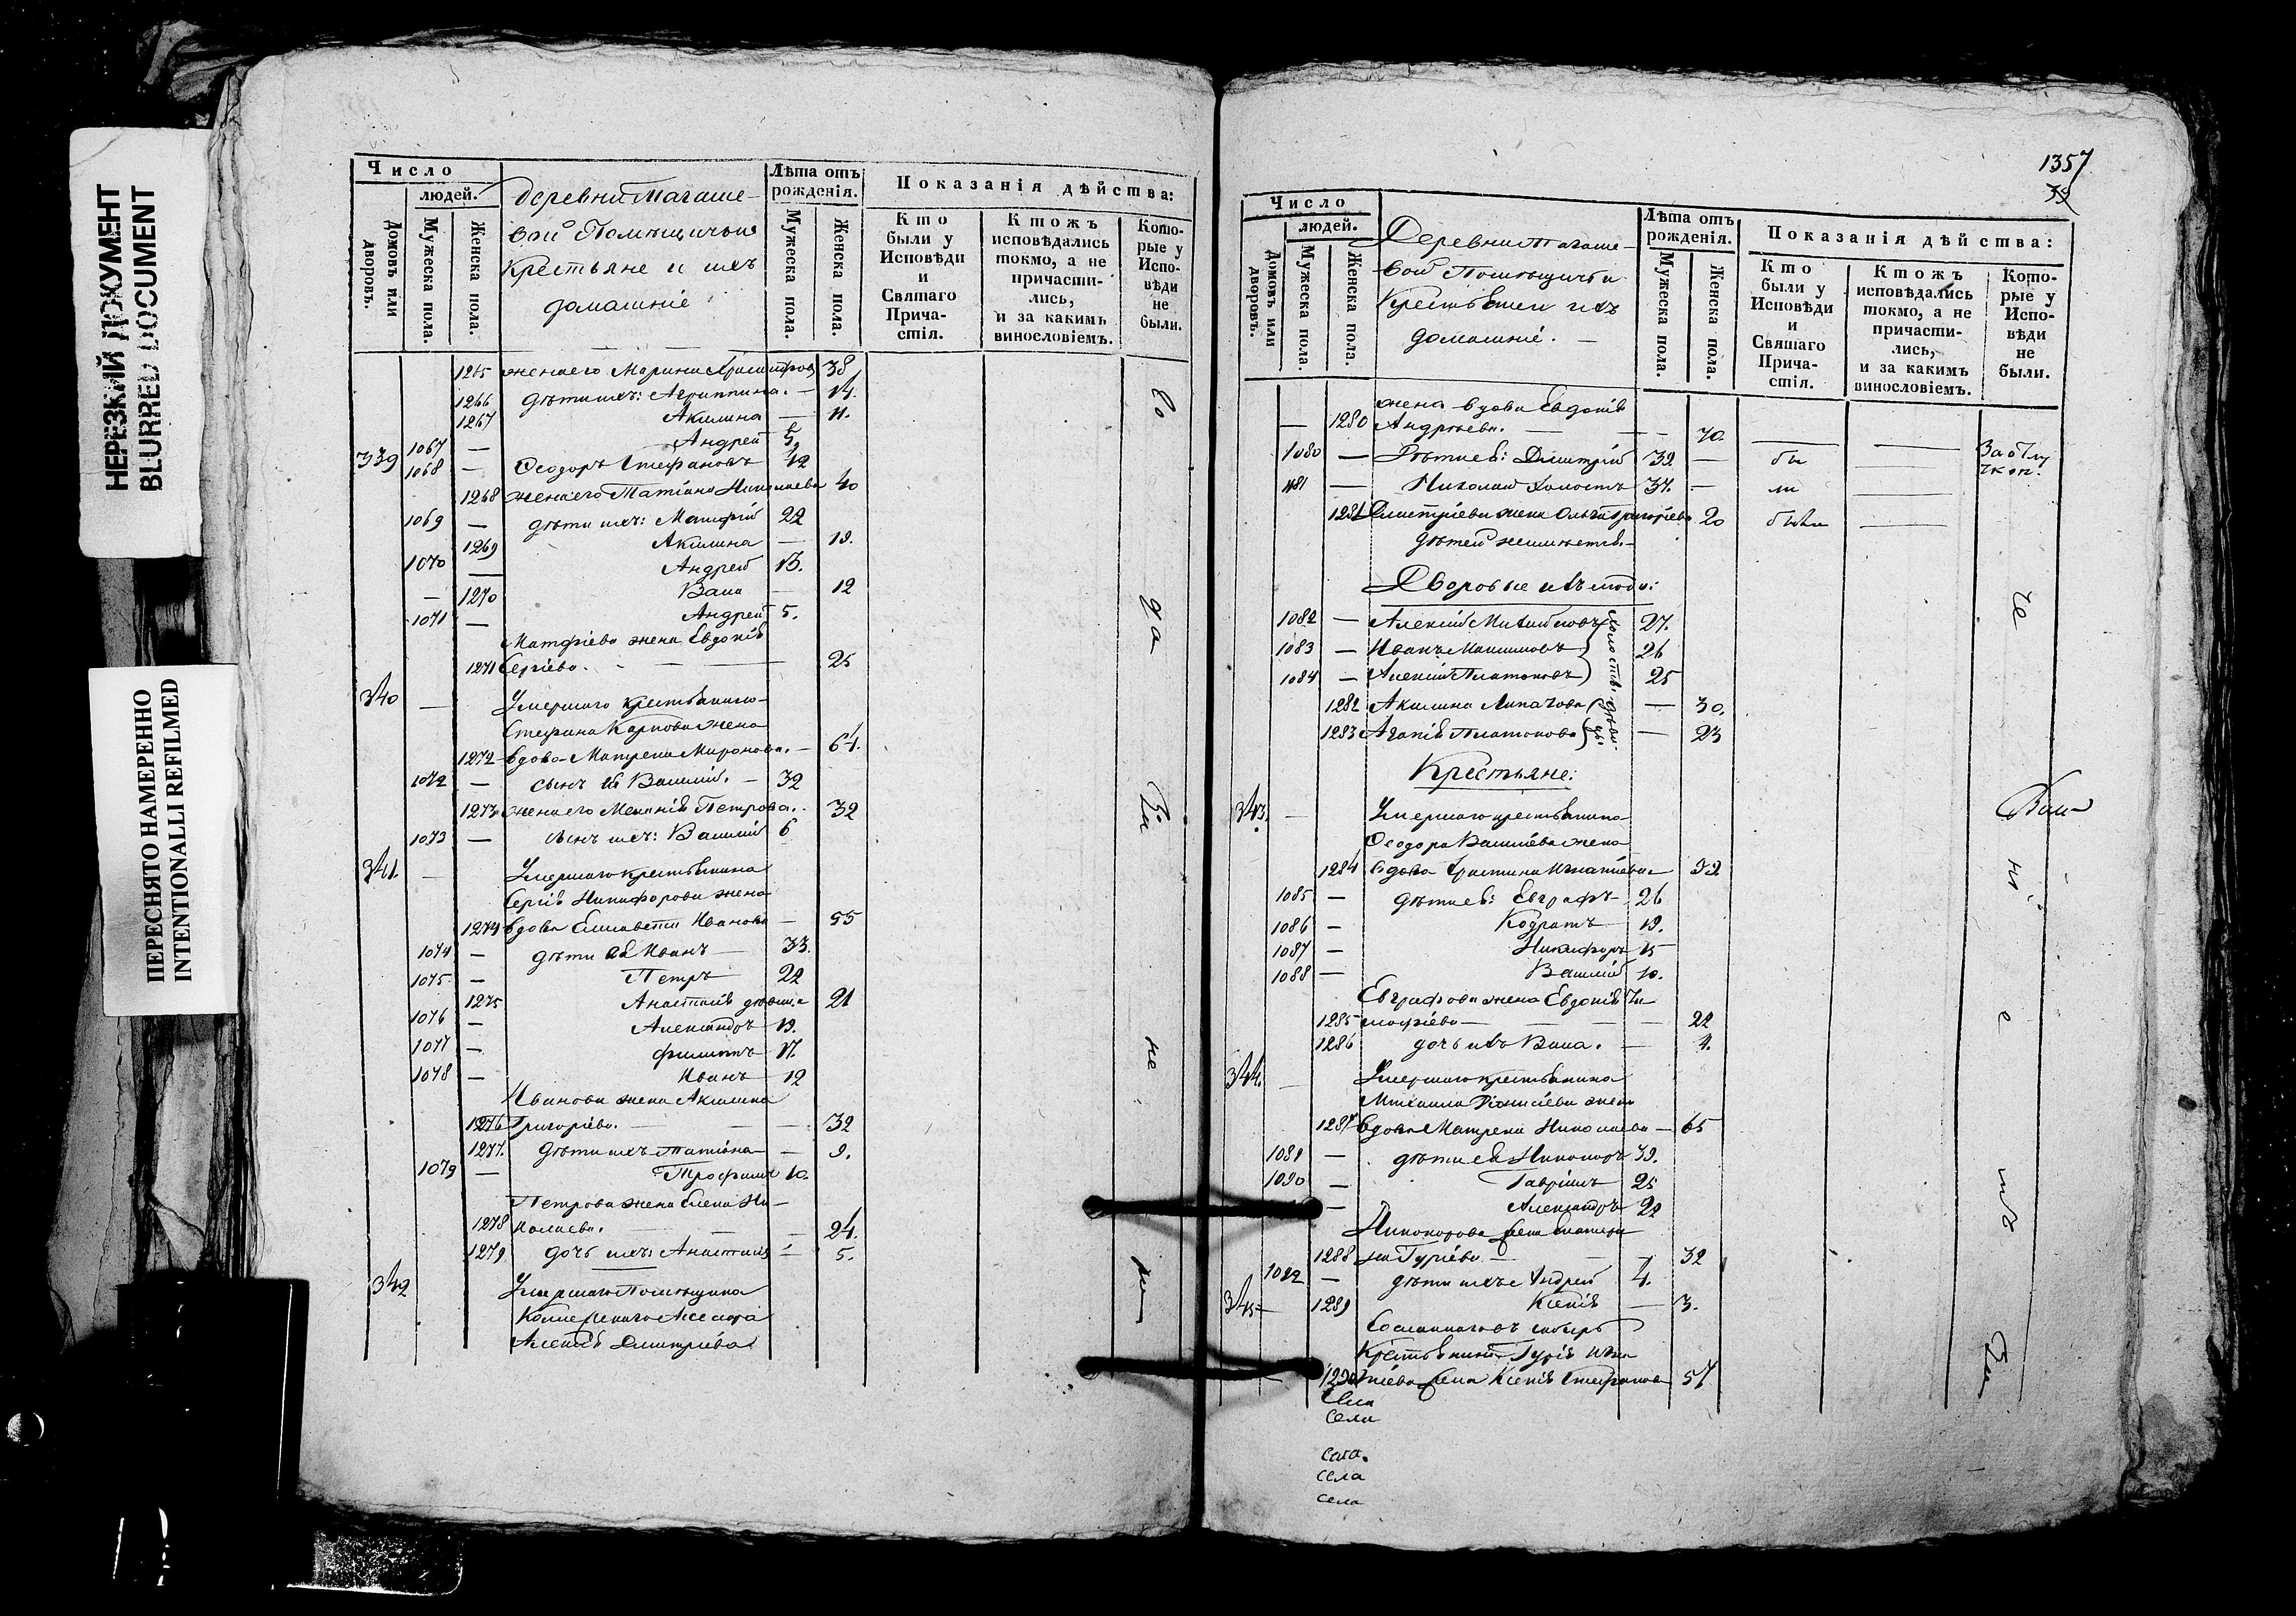 НЕРЕЗКИЙ ДОКУМЕНТ
BLURRED DOCUMENT
ПЕРЕСНЯТО НАМЕРЕННО
INTENTIONALLI REFILMED
Число
людей.
Домовъ или дворовъ.
Мужеска пола.
Женска пола.
Деревни
вой Помѣщичьи
Крестьяне и ихъ
домашніе
Лѣта отъ рожденія.
Мужеска пола.
Женска пола.
Показанія дѣйства:
Кто были у Исповѣди и Святаго Причастія.
Ктожъ исповѣдались токмо, а не причастились, и за какимъ винословіемъ.
Которые у Исповѣди не были.
1265 жена его Марина 38
1266 дѣти ихъ: Агриппина. — 14.
1267 Акилина — 11.
1067 — Андрей 5
339 1068 — Ѳеодоръ Стефановъ 42
1268 жена его Татіана Николаева 40
1069 — дѣти ихъ: Матфій 22
1269 Акилина — 19.
1070 — Андрей 13.
— 1270 Васа — 12
1071 — Андрей 5.
Матфіева жена Евдокія
1271 Сергіева. — — 25
340 — Умершаго крестьянина
Стефана Карпова жена
1272 вдова Матрена Миронова. — 64.
1072 — сынъ ея Василій. — 32
1273 жена его Меланія Петрова. 32
1073 — сынъ ихъ: Василій 6
341. — Умершаго крестьянина
Сергія Никифорова жена
1274 вдова Елисавета Иванова — 55
1074 — дѣти ея Иванъ — 33.
1075 — Петръ 22
1275 Анастасія дѣвица 21
1076 — Александръ 19.
1077 — Филиппъ 17.
1078 — Иванъ 12
Иванова жена Акилина
1276 Григоріева. — — 32
1277. дѣти ихъ Татіана — 9.
1079 — Трофимъ 10.
Петрова жена Елена Ни-
1278 колаева. — — 24.
1279 дочь ихъ: Анастасія — 5.
342 Умершаго Помѣщика
Коллежскаго Асессора
Алексѣя Дмитріева
1357
Число
людей.
Домовъ или дворовъ.
Мужеска пола.
Женска пола.
Деревни
вой Помѣщичьи
Крестьяне и ихъ
домашніе. —
Лѣта отъ рожденія.
Мужеска пола.
Женска пола.
Показанія дѣйства:
Кто были у Исповѣди и Святаго Причастія.
Ктожъ исповѣдались токмо, а не причастились, и за какимъ винословіемъ.
Которые у Исповѣди не были.
жена вдова Евдокія
— 1280 Андреева. — — 70.
1080 — Дѣти ея: Дмитрій 39 — бы
1081 — Николай холостъ 37. — ли
1281 Дмитріева жена Ольга Григоріева 20 были
Дворовые ихъ люди:
1082 — Алексій 27.
1083 — Иванъ Максимовъ 26
1084 — Алексій Платоновъ 25
1282 Акилина — 30.
1283 Агапія Платонова — 23
Крестьяне:
343. — Умершаго крестьянина
Ѳеодора Васильева жена
1284 вдова Христина Игнатіева
1085 — дѣти ея: Евграфъ 26
1086 — Кодратъ 19.
1087 — Никифоръ 15
1088 — Василій 10.
Евграфова жена Евдокія Ти-
1285 моѳіева — — — 22
1286 дочь ихъ Васа. — 4.
344. — Умершаго крестьянина
Михаила Діонисіева жена
1287 вдова Матрена Николаева — 65
1089 — дѣти ея Никаноръ 39.
1090 — Гавріилъ 25
— Александръ 22
Никанорова жена Екатери
1288 на Гуріева — — 32
1092 — дѣти ихъ Андрей 4.
345 — 1289 Ксенія — 3.
Сосланнаго въ Сибирь
Крестьянина Гурія Игна
1290 тіева жена Ксенія Стефанова 57
Села
Села
села.
села
села